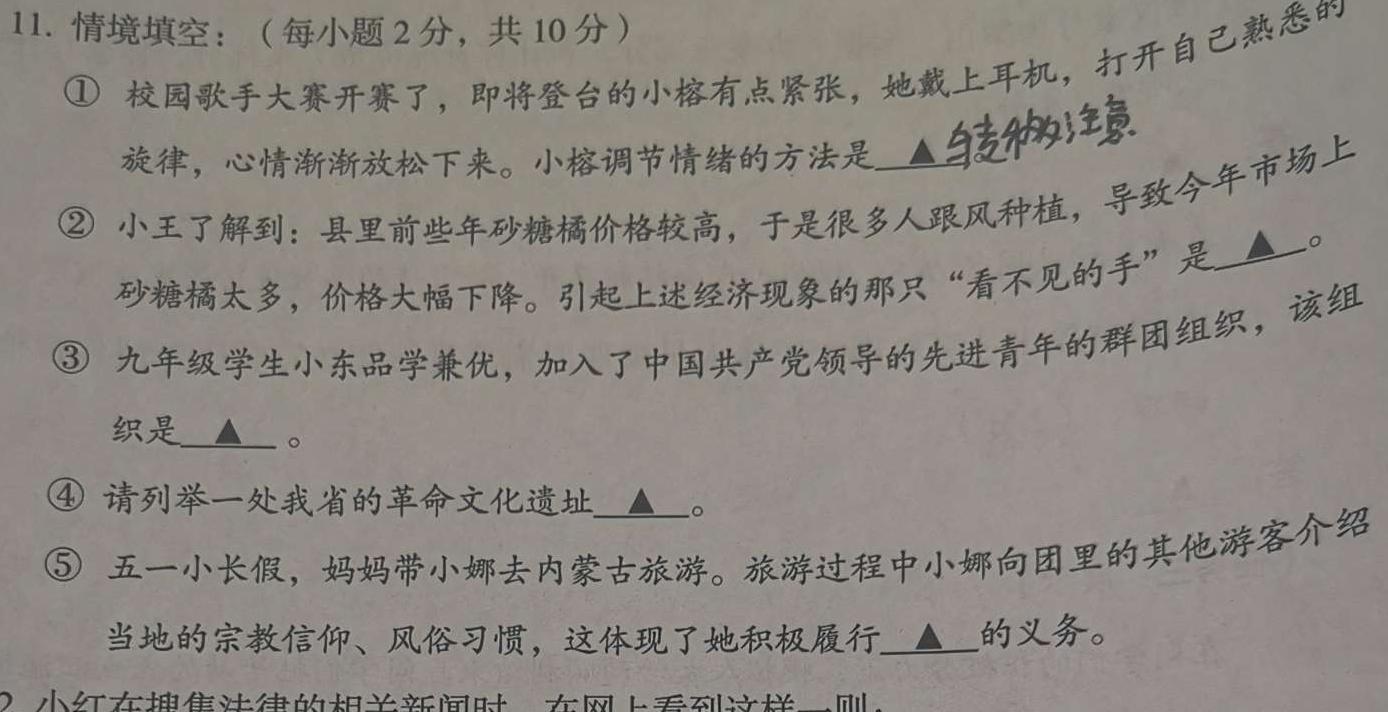 11. 情境填空：（每小题2分，共10分）
① 校园歌手大赛开赛了，即将登台的小榕有点紧张，她戴上耳机，打开自己熟悉的
旋律，心情渐渐放松下来。小榕调节情绪的方法是▲转移注意
② 小王了解到：县里前些年砂糖橘价格较高，于是很多人跟风种植，导致今年市场上
砂糖橘太多，价格大幅下降。引起上述经济现象的那只“看不见的手”是▲。
③ 九年级学生小东品学兼优，加入了中国共产党领导的先进青年的群团组织，该组
织是▲。
④ 请列举一处我省的革命文化遗址▲。
⑤ 五一小长假，妈妈带小娜去内蒙古旅游。旅游过程中小娜向团里的其他游客介绍
当地的宗教信仰、风俗习惯，这体现了她积极履行▲的义务。
2 小红在搜集法律的相关新闻时，在网上看到这样一则：